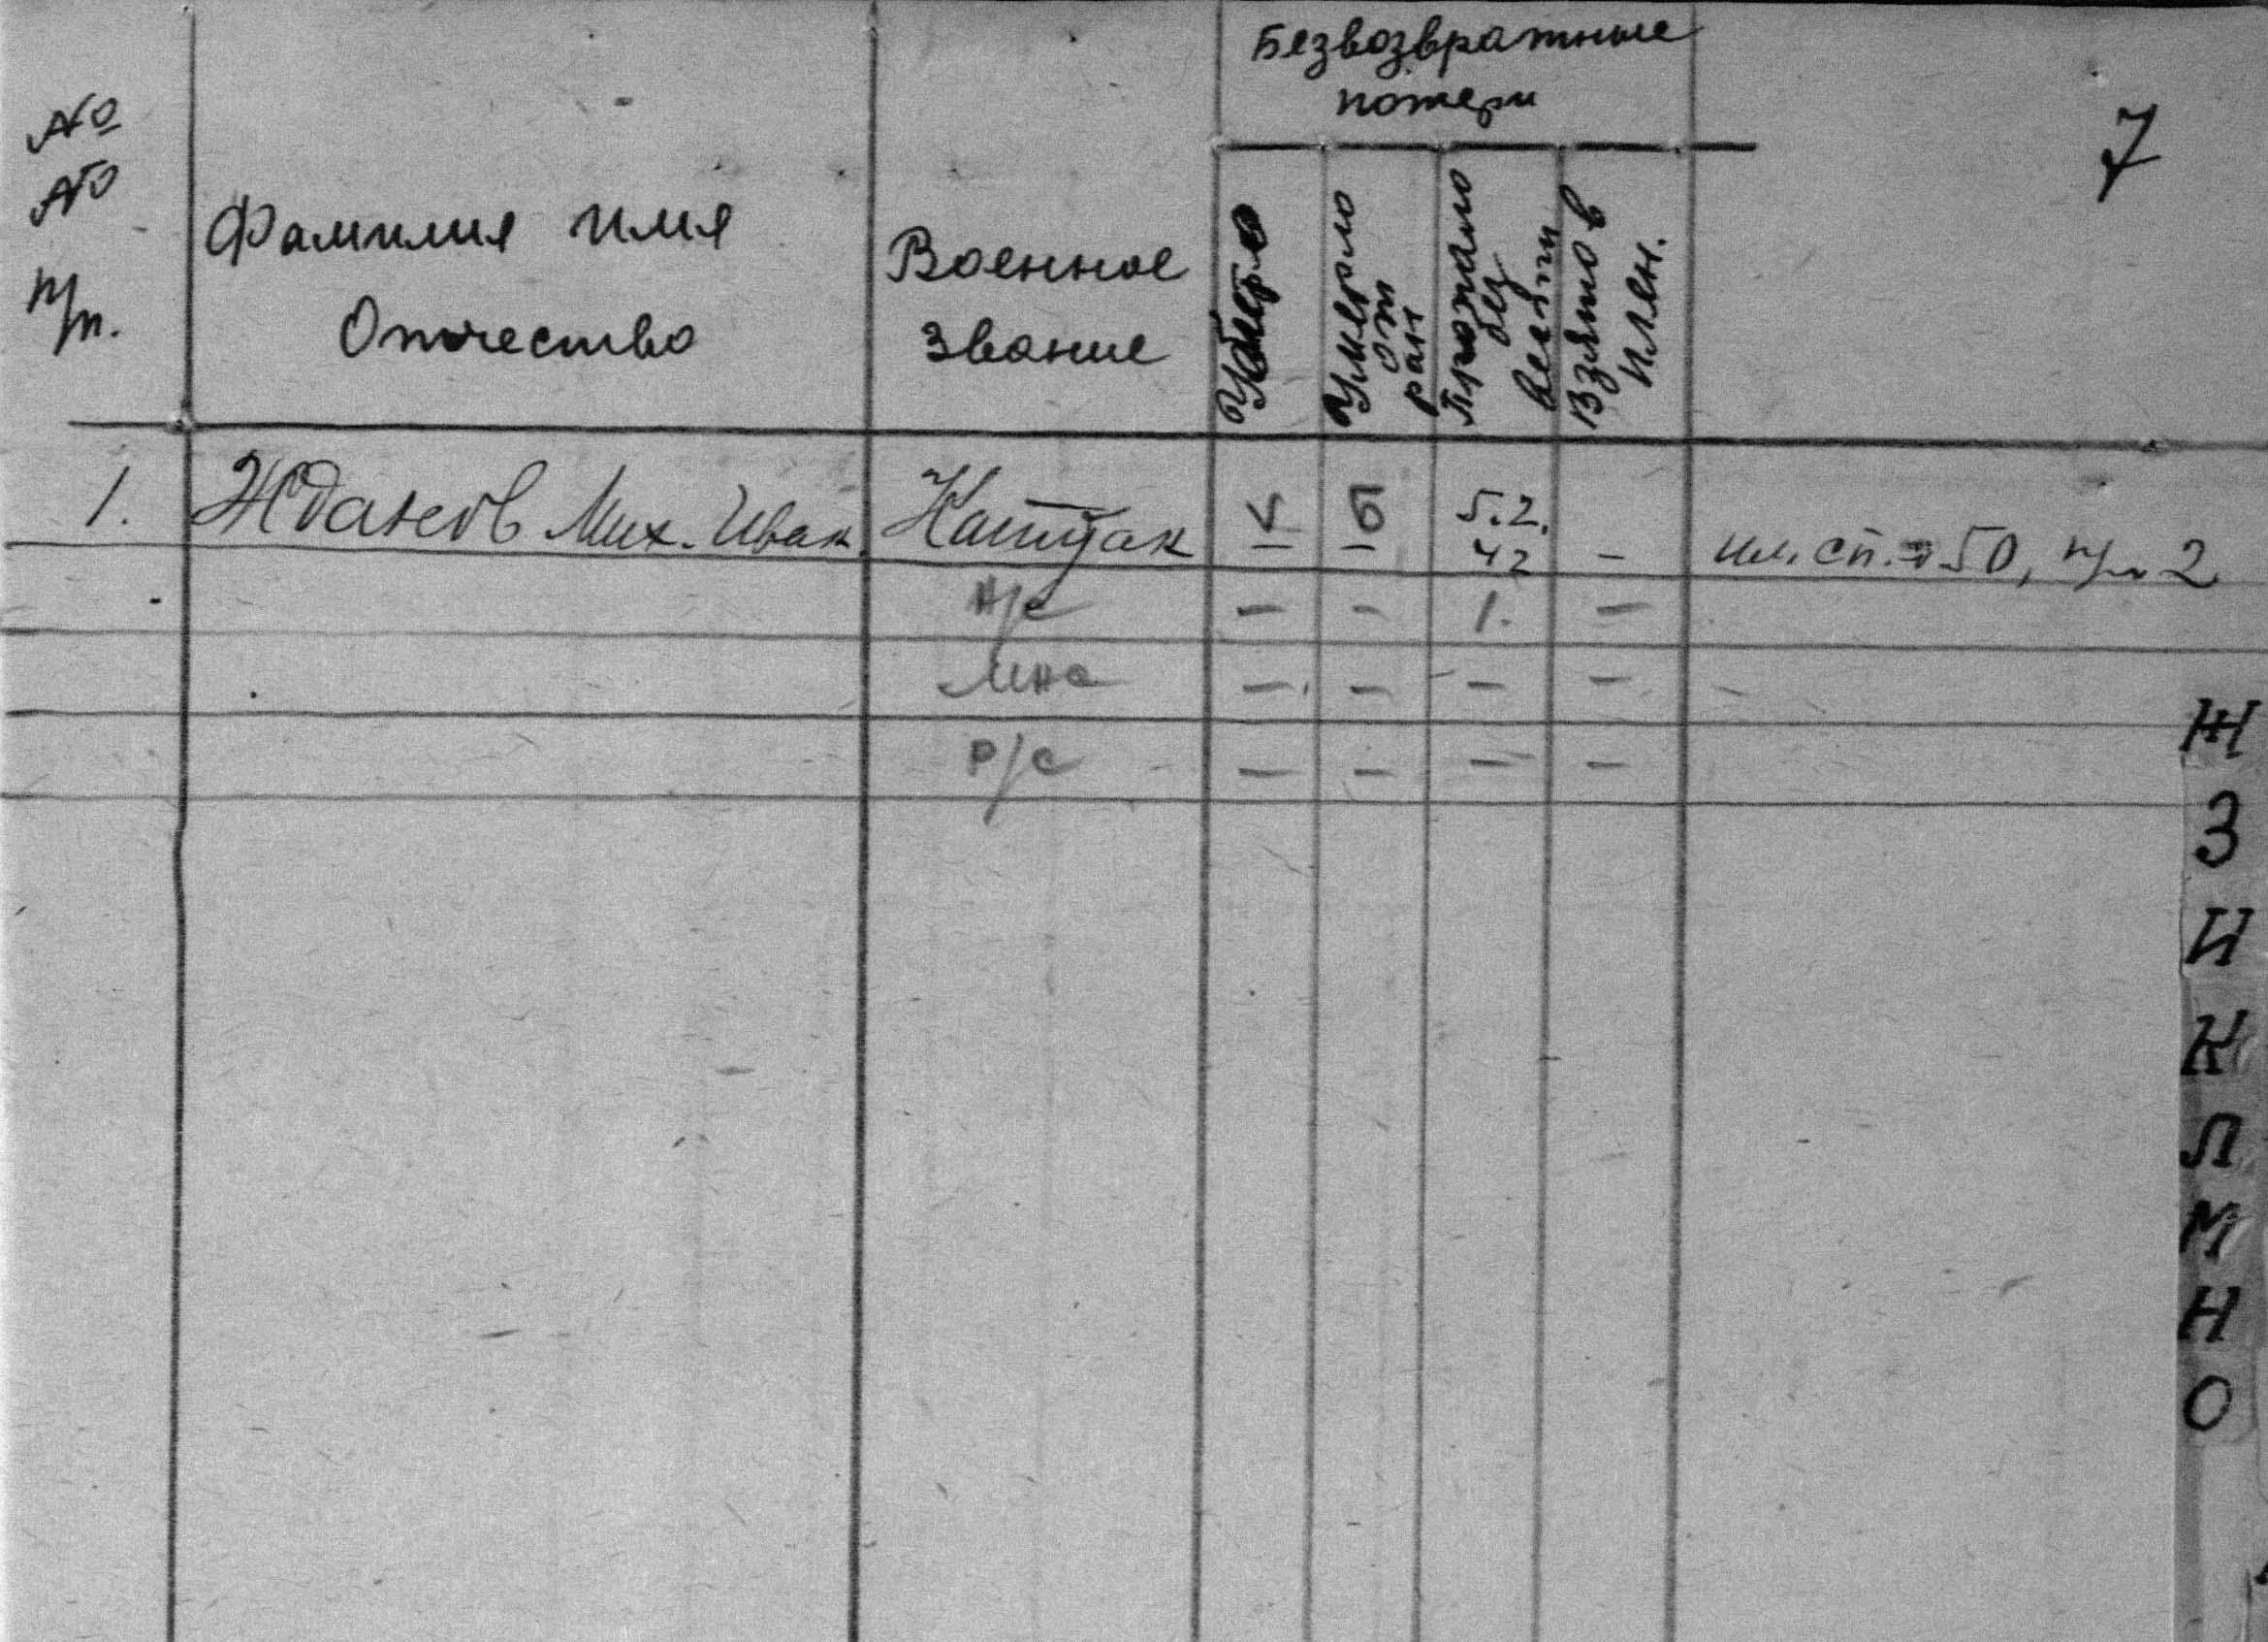 Безвозвратные
потери
7
№
№
п/п.
Фамилия имя
Отчество
Военное
Звание
Убито
Умерло
от
ран
Пропало
без
вести
Взято в
плен.
1. Жданов Мих. Иван. Капитан V Б 5.2. 42 – им. сп. 50, п/п 2
н/с – – 1. –
мнс – – – –
р/с – – – –
Ж
З
И
К
Л
М
Н
О